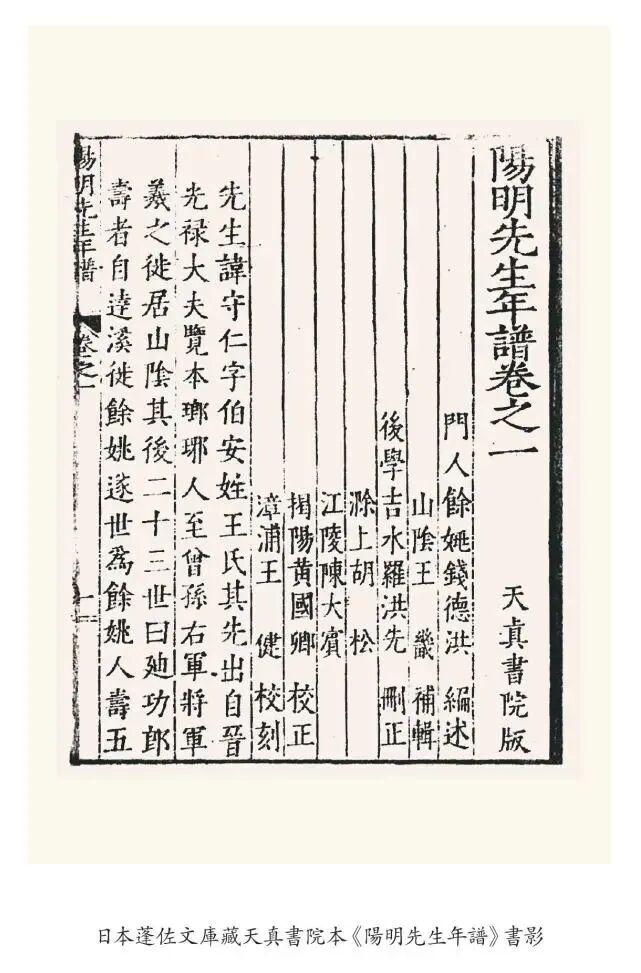 陽明先生年譜卷之一
天真書院版
門人餘姚錢德洪 編述
山陰王 畿 補輯
後學吉水羅洪先 刪正
滁上胡 松
江陵陳大賓
揭陽黃國卿 校正
漳浦王 健 校刻
先生諱守仁字伯安姓王氏其先出自晉
光禄大夫覽本瑯琊人至曾孫右軍將軍
羲之徙居山陰其後二十三世曰廸功郎
壽者自達溪徙餘姚遂世為餘姚人壽五
陽明先生年譜 卷之一 一
日本蓬佐文庫藏天真書院本《陽明先生年譜》書影